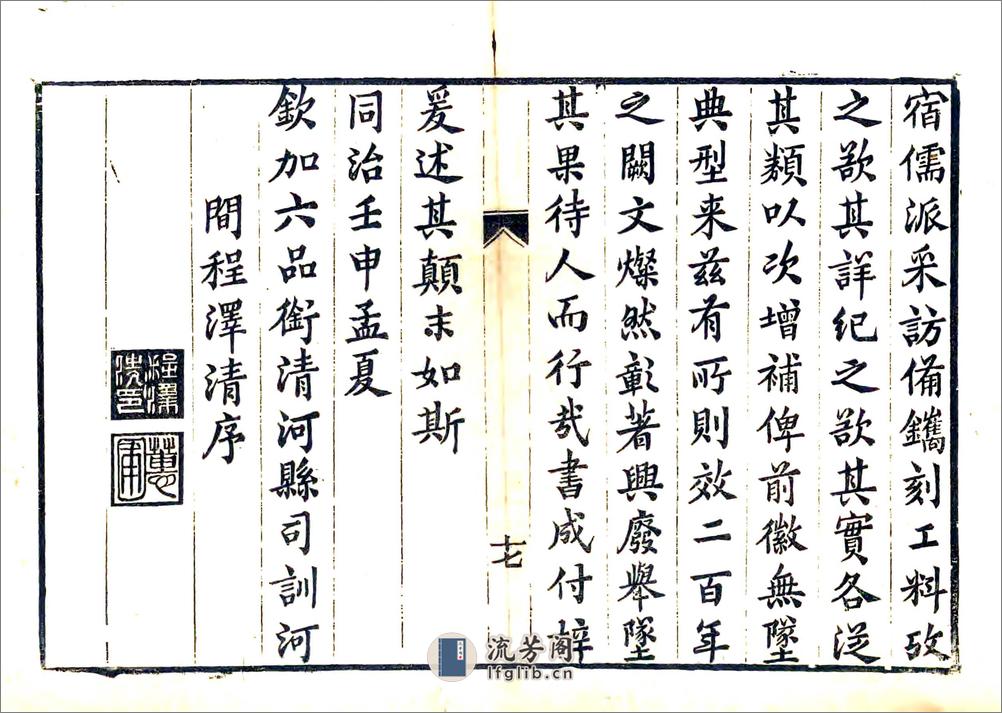 宿儒派采訪備鐫刻工料攷
之欲其詳紀之欲其實各从
其類以次增補俾前徽無墜
典型来兹有所則效二百年
之闕文燦然彰著興廢舉墜
其果待人而行哉書成付梓
十七
爰述其顛末如斯
同治壬申孟夏
欽加六品銜清河縣司訓河
間程澤清序
程澤清印
蕙圃
流芳阁
lfglib.cn